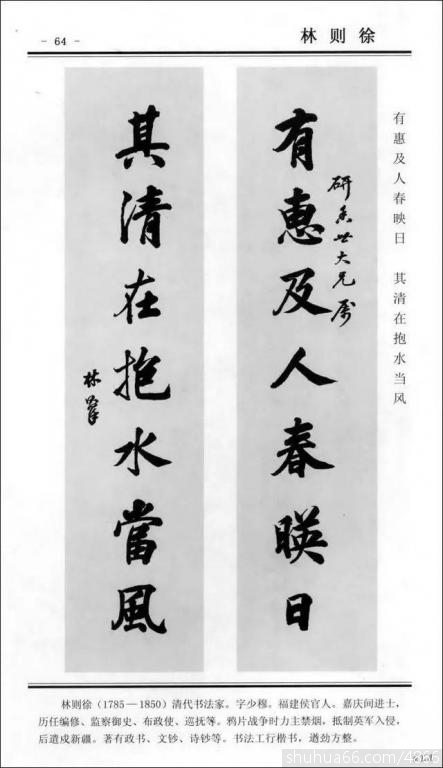 - 64 -
林则徐
有惠及人春映日 其清在抱水当风
研香世大兄属
有惠及人春暎日
其清在抱水當風
林
林则徐(1785—1850)清代书法家。字少穆。福建侯官人。嘉庆间进士,
历任编修、监察御史、布政使、巡抚等。鸦片战争时力主禁烟,抵制英军入侵,
后遣戍新疆。著有政书、文钞、诗钞等。书法工行楷书,遒劲方整。
shuhua66.com